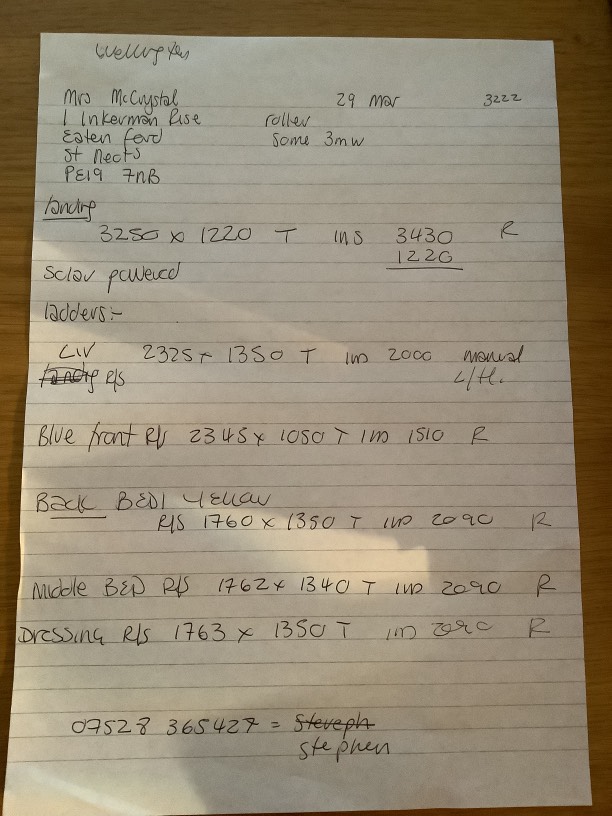 Wellington
Mrs McCrystal 29 Mar 3222
1 Inkerman Rise roller
Eaten ford some 3mw
St Neots
PE19 7NB
Landing
3250 x 1220 T ins 3430 R
1220
Solar powered
ladders:-
LIV 2325 x 1350 T ins 2000 manual
R/S L/H.
Blue front R/S 2345 x 1050 T ins 1510 R
Back BED1 Yellow
R/S 1760 x 1350 T ins 2090 R
Middle BED R/S 1762 x 1340 T ins 2090 R
Dressing R/S 1763 x 1350 T ins 2090 R
07528 365427 = Steveph
Stephen